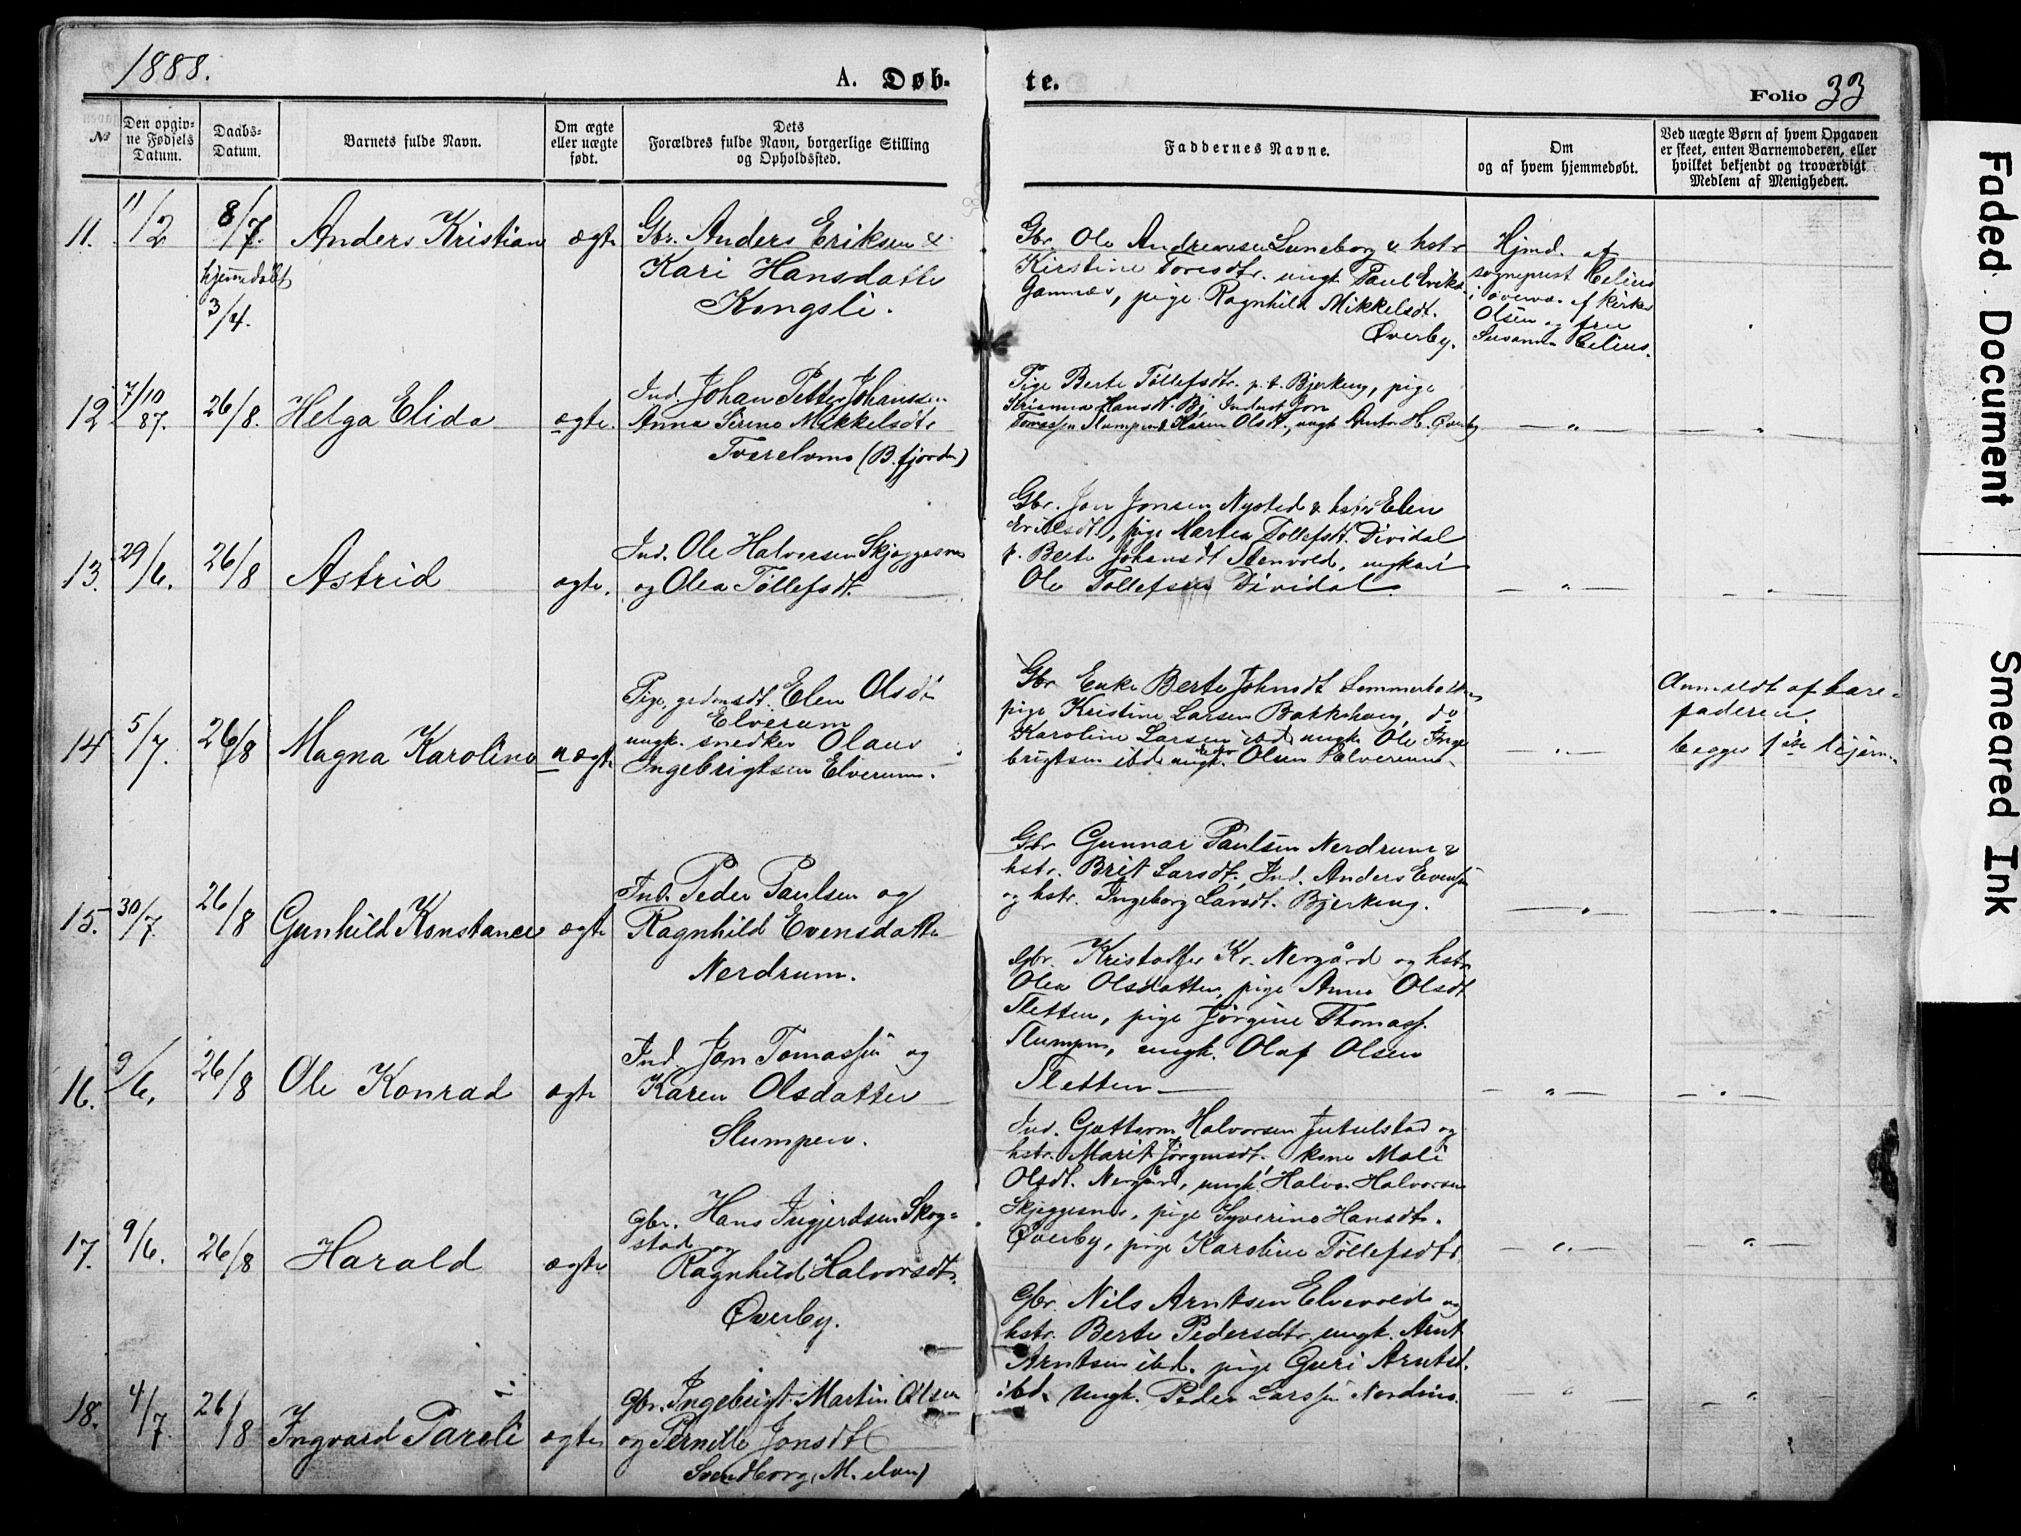 1888.
A. Døb-
te.
Folio 33
№
Den opgiv-
ne Fødsels
Datum.
Daabs-
Datum.
Barnets fulde Navn.
Om ægte
eller uægte
født.
Dets
Forældres fulde Navn, borgerlige Stilling
og Opholdssted.
Faddernes Navne.
Om
og af hvem hjemmedøbt.
Ved uægte Børn af hvem Opgaven
er skeet, enten Barnemoderen, eller
hvilket bekjendt og troværdigt
Medlem af Menigheden.
11. 11/2 8/7. Anders Kristian ægte
hjemdøbt
3/4.
Gbr. Anders Eriksen &
Kari Hansdatter
Kongsli.
Gbr. Ole Andreassen Luneborg & hstr
Kirstine Toresdtr. ungk. Paul Eriks.
pige Ragnhild Mikkelsdt.
Øverby.
Hjmd. af
sogneprest Celius
i overvær af kirkes.
Olsen og fru
Susanna Celius.
12 7/10 87. 26/8. Helga Elida ægte.
Ind. Johan Petter Johanssen
Anna Serine Mikkelsdtr
Tverelvmo (B. fjorden)
Pige Berte Tollefsdtr. p. t. Bjerkeng, pige
Hansdt. Bj. Inderst Jon
Tomassen Slumpen & Karen Olsdt., ungk Anton H. Øverby
13. 29/6. 26/8 Astrid ægte.
Ind. Ole Halvorsen Skjæggesnes
og Olea Tollefsdt.
Gbr. Jon Jonsen Nysted & hstr Elen
Eriksdt, pige Martea Tollefsdt. Dividal
p. Berte Johansdt Stenvold, ungkarl
Ole Tollefsen Dividal.
14 5/7. 26/8 Magna Karoline uægte
Pige, grdmsdt. Elen Olsdtr
Elverum
ungk. snedker Olaus
Ingebrigtsen Elverum.
Gbr Enke Berte Johnsdt
pige Kristine Larsen Bakkehaug, do
Karoline Larsen ibd, ungk Ole Inge
brigtsen ibd ungk. Olsen Elverum
Anmeldt af barne-
faderen.
begges 1ste lejerm.
15. 30/7. 26/8 Gunhild Konstance ægte
Ind. Peder Paulsen og
Ragnhild Evensdatter
Nerdrum.
Gbr Gunnar Paulsen Nerdrum &
hstr. Brit Larsdt., Ind. Anders Evensen
og hstr. Ingeborg Larsdt. Bjerkeng.
16. 9/6. 26/8 Ole Konrad ægte
Ind. Jon Tomassen og
Karen Olsdatter
Slumpen.
Gbr. Kristoffer Kr. Nergård og hstr
Olea Olsdatter, pige Anne Olsdt
Sletten, pige Jørgine Thomass.
Slumpen, ungk. Olaf Olsen
Sletten
17. 9/6. 26/8 Harald ægte
Gbr. Hans Ingjerdsen Skog=
stad og
Ragnhild Halvorsdt.
Øverby.
Ind. Guttorm Halvorsen Jutulstad og
hstr. Marit Jørgensdt. kone Mali
Olsdt. Nergård, ungk. Halvor Halvorsen
Skjeggesnes, pige Syverine Hansdtr.
Øverby, pige Karoline Tollefsdtr.
18. 4/7. 26/8 Ingvard Pareli ægte
Gbr. Ingebrigt Martin Olsen
og Pernille Jonsdt
Svendborg, (M. elven)
Gbr. Nils Arntsen Elvevold og
hstr. Berte Pedersdtr, ungk. Arnt
Arntsen ibd. pige Guri Arntsd.
ibd. ungk. Peder Larssen Nordmo.
Faded Document
Smeared Ink